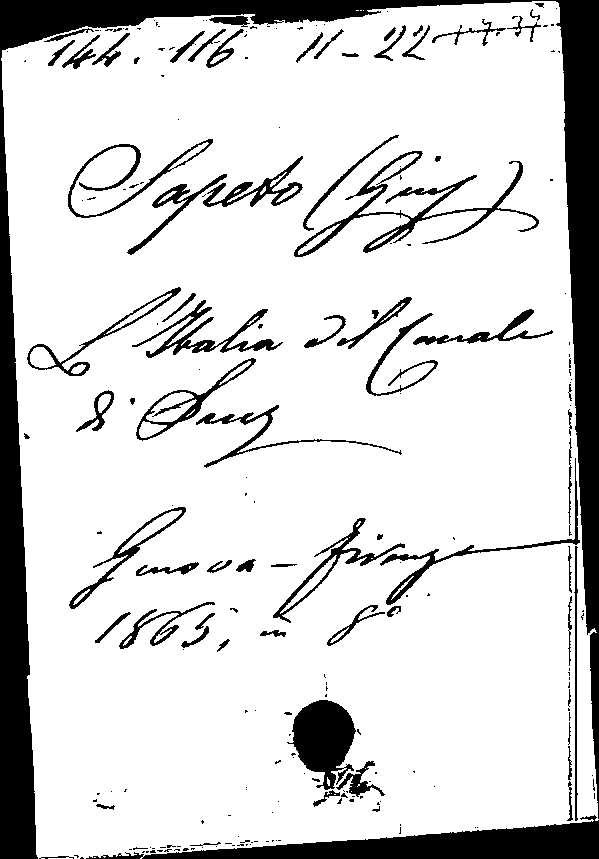 144. 116. 11-22 17.37
Sapeto (Gius)
L'Italia e il Canale
di Suez
Genova - Firenze
1865, in 8º